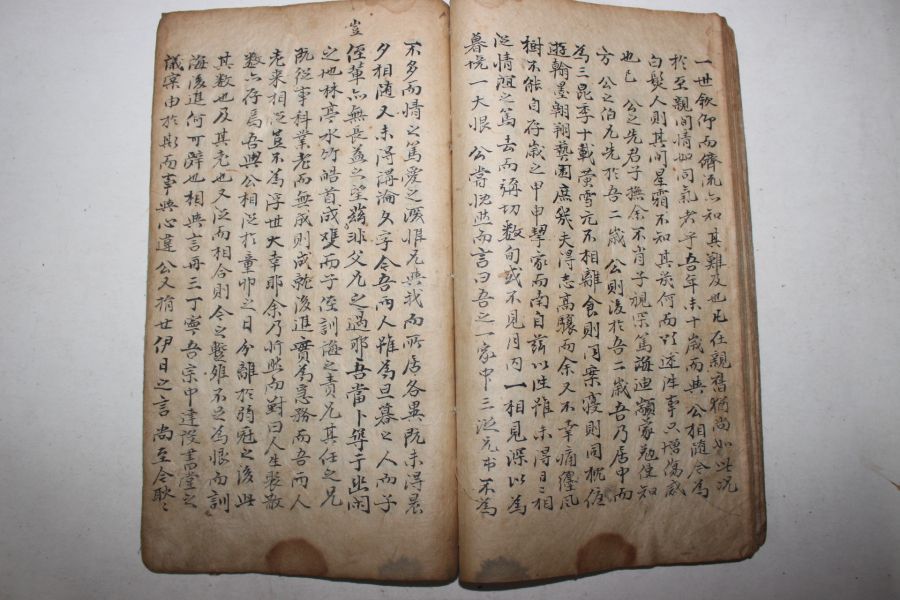 一世欽仰而儕流亦知其難及也凡在親舊猶尚如此況
於至親間情如同氣者乎吾年未十歲而與公相隨今為
白髮人則其間星霜不知其幾何而欲述往事只增傷感
也已 公之先君子撫余不肖子視罙篤誨迪顓蒙勉使知
方 公之伯兄先於吾二歲 公則後於吾二歲吾乃居中而
為三昆季十載螢雪元不相離食則同案寢則同枕
遊翰墨翱翔藝圃庶幾夫得志高驤而余又不幸痛纏風
樹不能自存歲之甲申挈家而南自以雖未得日日相
從情誼之篤去而彌切數旬或不見月內一相見深以為
暮境一大恨 公嘗悅然而言曰吾之一家中三從兄弟不為
不多而情之篤愛之深惟兄與我而所居各異既未得晨
夕相隨又未得講論文字令吾兩人雖為旦暮之人而子
豈
侄輩亦無長益之望茲非父兄之過耶吾當卜築于幽閑
之地林亭水竹皓首成雙而子侄訓誨之責兄其任之兄
既從事科業老而無成則成就後進實為急務而吾兩人
老來相從豈不為浮世大幸耶余乃怃然而對曰人生聚散
數亦存焉吾與公相從於童丱之日分離於弱冠之後此
其數也及其老也又從而相合則今之暫離不足為恨而訓
誨後進何可辭也相與言再三丁寧吾宗中建設書堂之
議案由於斯而事與心違 公又捐世伊日之言尚至今耿々